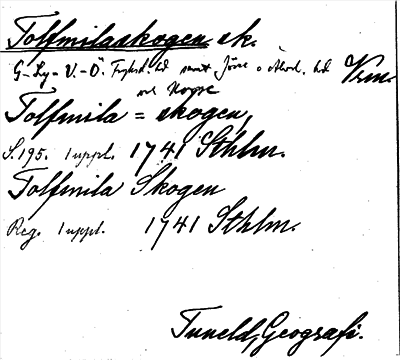 Tolfmilaskogen sk.
G-Ly = V.-Ö. Fryksd. hd samt Jösse o Älvd. hd Vrm.
och Norge
Tolfmila = skogen,
S. 195. 1 uppl. 1741 Sthlm.
Tolfmila Skogen
Reg. 1 uppl. 1741 Sthlm.
Tuneld, Geografi.